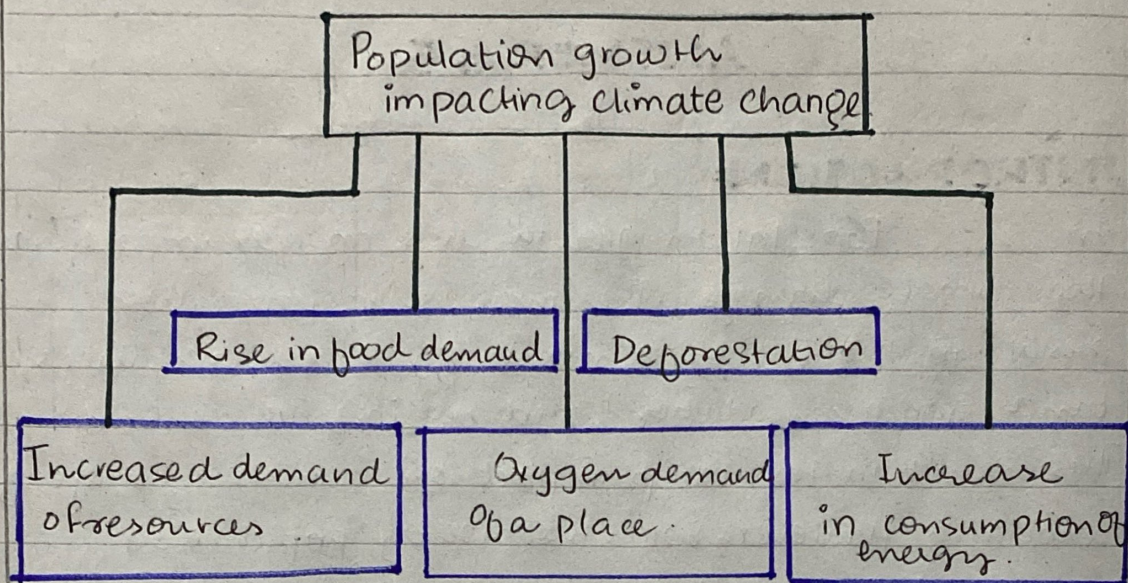 Population growth
impacting climate change
Rise in food demand
Deforestation
Increased demand
of resources
Oxygen demand
of a place.
Increase
in consumption of
energy.